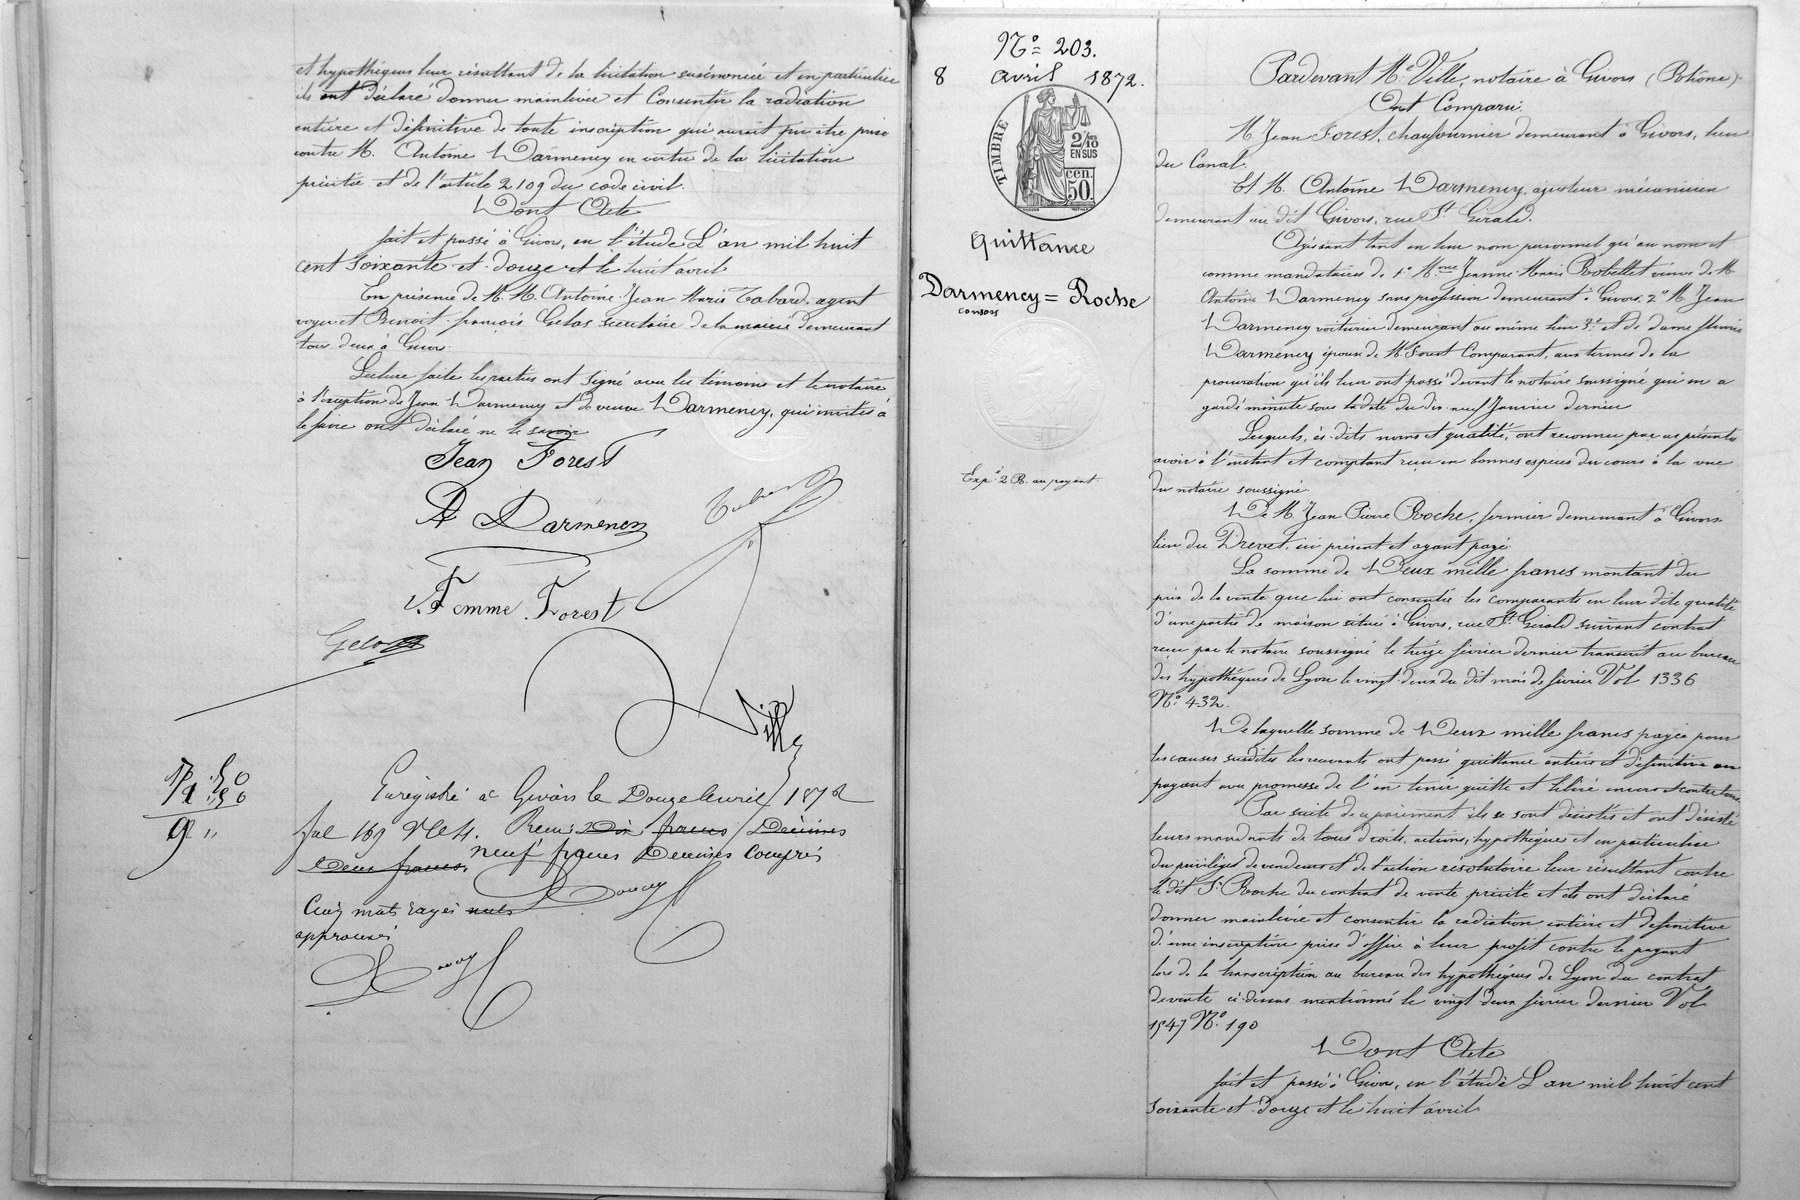 et hypothéques leur résultant de la licitation susénoncée et en particulier
ils ont déclaré donner mainlevée et Consentir la radiation
entière et définitive de toute inscription qui aurait pu être prise
contre M. Antoine Darmency en vertu de la licitation
précitée et de l'article 2109 du code civil.
Dont Acte
fait et passé à Givors, en l'étude L'an mil huit
cent soixante et douze et le huit avril
En présence de M.M. Antoine Jean Marie Tabard, agent
voyer et Benoit françois Gelas secrétaire de la mairie demeurant
tous deux à Givors.
Lecture faite les parties ont signé avec les témoins et le notaire
à l'exception de Jean Darmency et de veuve Darmency, qui invités à
le faire ont déclaré ne le savoir
Jean Forest
A Darmency
Tabard
Femme Forest
Gelas
Ville
7 50
1 50
9 "
Enrégistré à Givors le Douze avril 1872
fol 169 V C 4. Recu Dix francs Décimes
Deux francs, neuf francs Decimes Compris
Cinq mots rayés nuls
approuvés
N° 203.
8 avril 1872.
TIMBRE
2/10
EN SUS
cen.
50.
Quittance
Darmency = Roche
consors
Exp. 2 R. au payant
Pardevant Me Ville, notaire à Givors (Rhône).
Ont Comparu:
M. Jean Forest, chaufournier demeurant à Givors, lieu
du Canal.
Et M. Antoine Darmency, ajusteur mécanicien
demeurant au dit Givors, rue St Gerald.
Agissant tant en leur nom personnel qu'au nom et
comme mandataires de 1° Mme Jeanne Marie Robellet veuve de M.
Antoine Darmency sans profession demeurant à Givors, 2° M. Jean
Darmency voiturier demeurant au même lieu 3° et de dame
Darmency épouse de M. Forest Comparant, aux termes de la
procuration qu'ils leur ont passé devant le notaire soussigné qui en a
gardé minute sous la date du dix neuf Janvier dernier
Lesquels, ès-dits noms et qualité, ont reconnu par ces présentes
avoir à l'instant et comptant reçu en bonnes espèces du cours à la vue
du notaire soussigné
De M. Jean Pierre Roche, fermier demeurant à Givors
lieu du Drevet, ici présent et ayant payé
La somme de Deux mille francs montant du
prix de la vente que lui ont consentie les comparants en leur dite qualité
d'une partie de maison située à Givors, rue St Gerald suivant contrat
reçu par le notaire soussigné le treize février dernier transcrit au bureau
des hypothéques de Lyon le vingt deux du dit mois de février Vol 1336
N° 432.
De laquelle somme de Deux mille francs payée pour
les causes susdites les recevants ont passé quittance entière et définitive au
payant avec promesse de l'en tenir quitte et libéré envers et contre tous
Par suite de ce paiement ils se sont désistés et ont désisté
leurs mandants de tous droits, actions, hypothéques et en particulier
du privilège de vendeurs et de l'action résolutoire leur résultant contre
le dit Sr Roche du contrat de vente précité et ils ont déclaré
donner mainlevée et consentir la radiation entière et définitive
d'une inscription prise d'office à leur profit contre le payant
lors de la transcription au bureau des hypothéques de Lyon du contrat
de vente ci-dessus mentionné le vingt deux février dernier Vol
1547 N° 190
Dont Acte
fait et passé à Givors, en l'étude L'an mil huit cent
soixante et douze et le huit avril